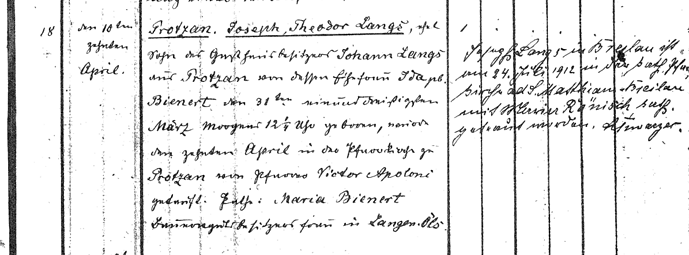 18
den 10ten
zehnten
April.
Protzan. Joseph, Theodor Langs, ehl.
Sohn des Gasthausbesitzers Johann Langs
aus Protzan von dessen Ehefrau Ida geb.
Bienert den 31ten einunddreißigsten
März morgens 12¼ Uhr geboren, wurde
den zehnten April in der Pfarrkirche zu
Protzan vom Pfarrer Victor Apoloni
getauft. Pathe: Maria Bienert
Bauerngutsbesitzersfrau in Langen-Öls.
Joseph Langs in Breslau ist
am 24. Juli 1912 in der kath. Pfarr
kirche ad S. Matthiam-Breslau
mit Maria Hänisch kath.
getraut worden.